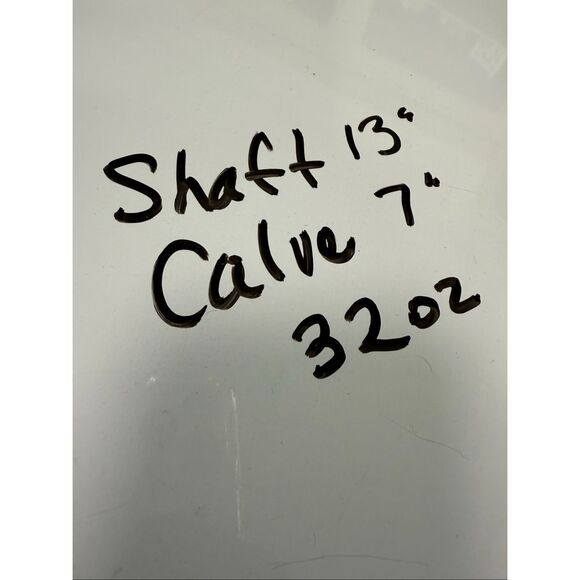 Shaft 13"
Calve 7"
32oz